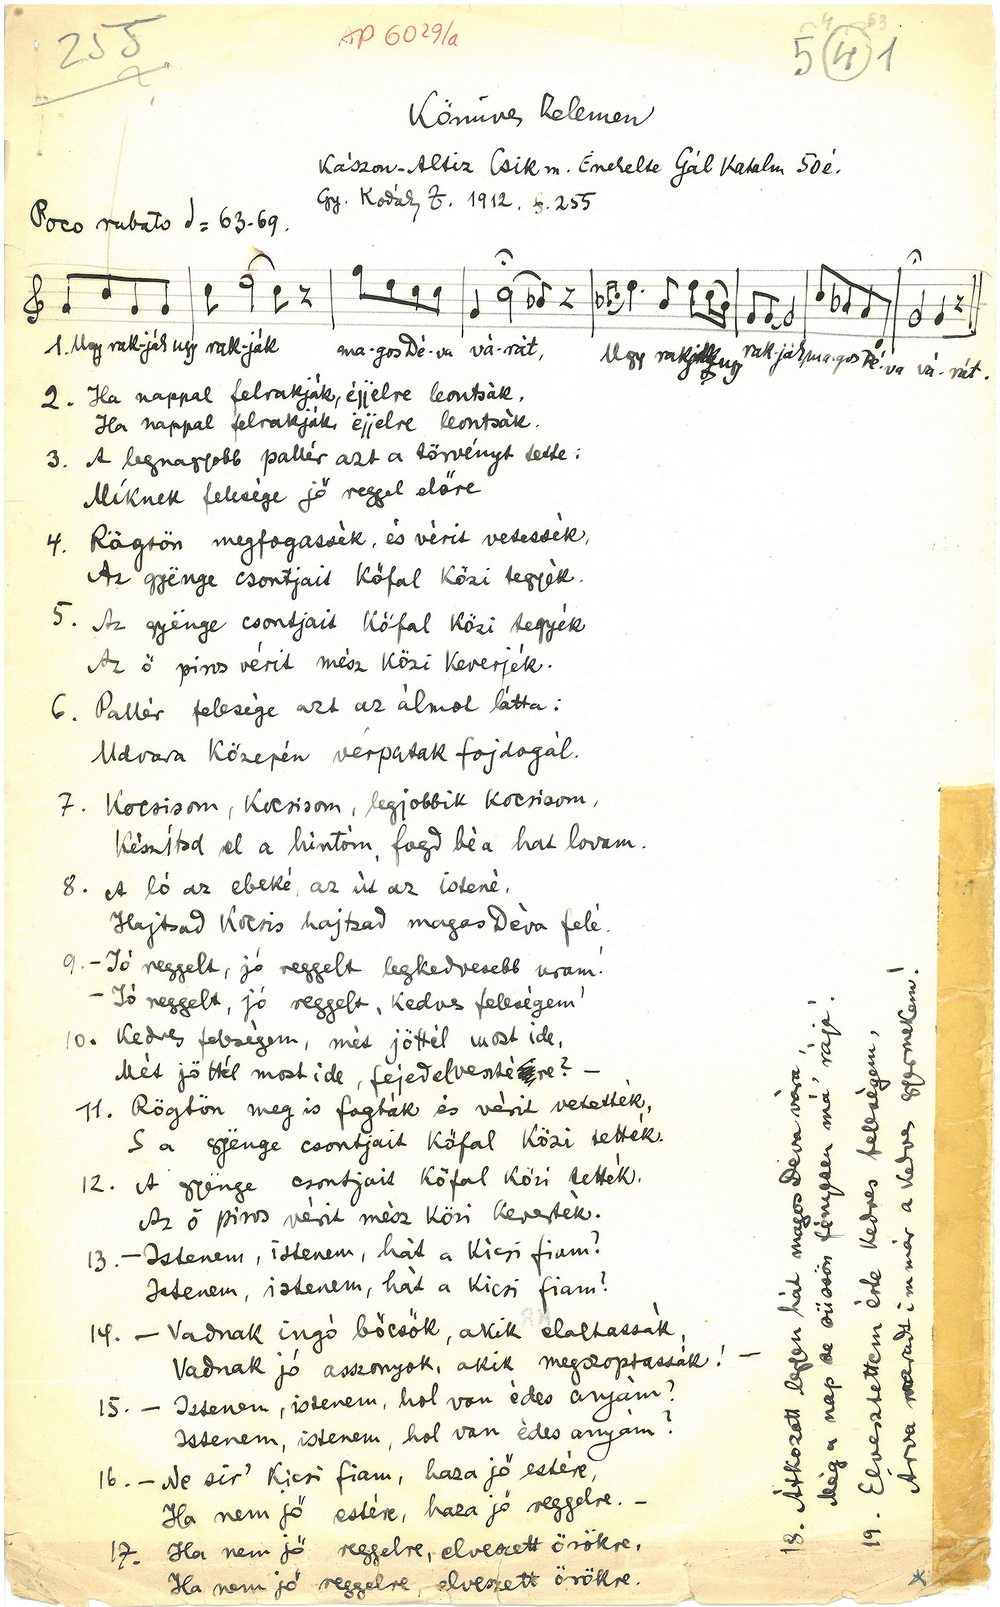 255
AP 6029/a
5 (4) 1
Kömíves Kelemen
Kászon-Altiz Csik m. Énekelte Gál Katalin 50 é.
Gy. Kodály Z. 1912. 255
Poco rubato ♩= 63-69.
1. Ugy rak-ják ugy rak-ják ma-gos Dé-va vá-rát, Ugy rakják ugy rak-ják ma-gos Dé-va vá-rát.
2. Ha nappal felrakják, éjjelre leontsák,
Ha nappal felrakják, éjjelre leontsák.
3. A legnagyobb pallér azt a törvényt tette:
Miknek felesége jő reggel előre
4. Rögtön megfogassék, és vérit vetessék,
Az gyënge csontjait kőfal közi tegyék.
5. Az gyënge csontjait kőfal közi tegyék
Az ő piros vérit mész közi keverjék.
6. Pallér felesége azt az álmot látta:
Udvara közepén vérpatak fojdogál.
7. Kocsisom, kocsisom, legjobbik kocsisom,
Készítsd el a hintóm, fogd bé a hat lovam.
8. A ló az ebeké, az út az istené,
Hajtsad kocsis hajtsad magas Déva felé.
9. - Jó reggelt, jó reggelt legkedvesebb uram!
- Jó reggelt, jó reggelt, kedves feleségem!
10. Kedves feleségem, mét jöttél most ide,
Mét jöttél most ide, fejedelvesztére? -
11. Rögtön meg is fogták és vérit vetették,
S a gyënge csontjait kőfal közi tették.
12. A gyënge csontjait kőfal közi tették.
Az ő piros vérit mész közi keverték.
13. - Istenem, istenem, hát a kicsi fiam?
Istenem, istenem, hát a kicsi fiam?
14. - Vadnak ingó bőcsők, akik elaltassák,
Vadnak jó asszonyok, akik megszoptassák! -
15. - Istenem, istenem, hol van édes anyám?
Istenem, istenem, hol van édes anyám?
16. - Ne sir' kicsi fiam, haza jő estére,
Ha nem jő estére, haza jő reggelre. -
17. Ha nem jő reggelre, elveszett örökre,
Ha nem jő reggelre, elveszett örökre.
18. Átkozott legyen hát magos Déva vára,
Még a nap se süssön fényesen má' rája!
19. Elvesztettem érte kedves feleségem,
Árva maradt immár a kedves gyermekem!